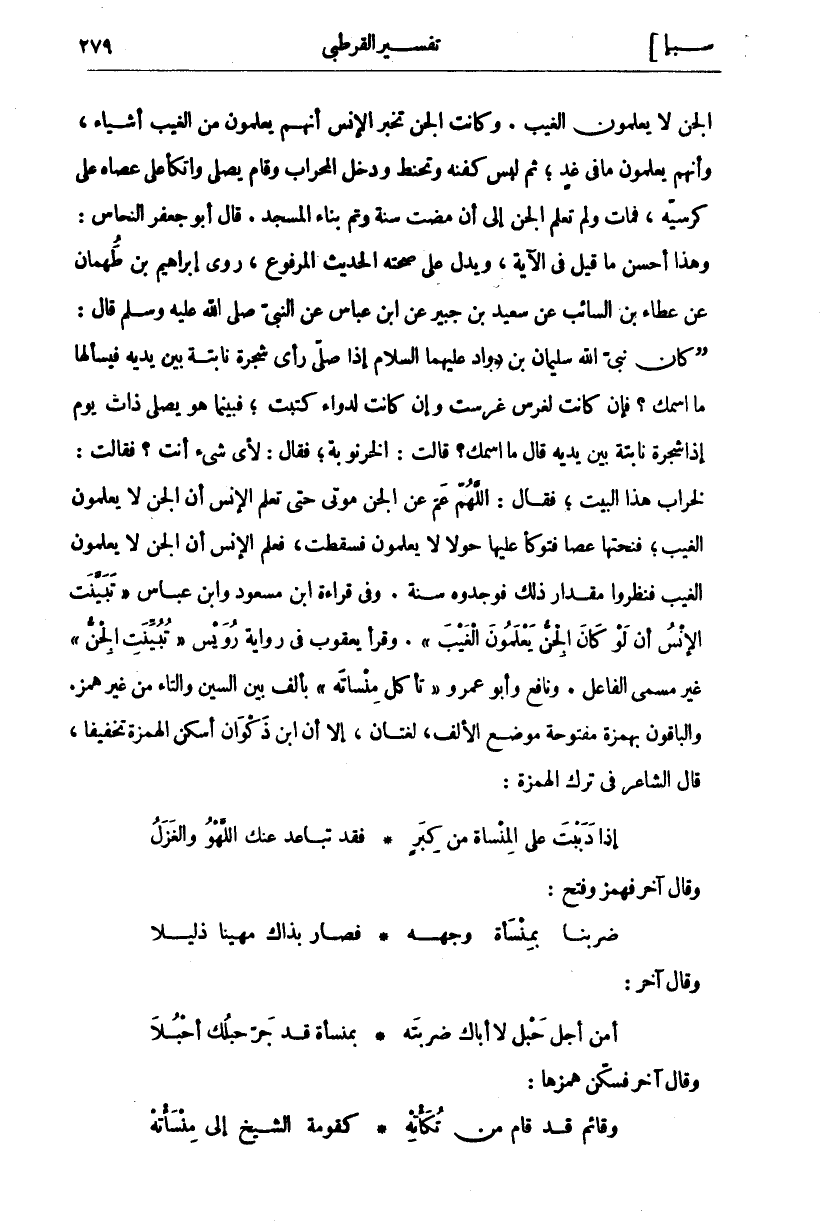 سبإ] تفسير القرطبى ٢٧٩
الجن لا يعلمون الغيب . وكانت الجن تخبر الإنس أنهم يعلمون من الغيب أشياء ،
وأنهم يعلمون مافى غدٍ ؛ ثم لبس كفنه وتحنط ودخل المحراب وقام يصلى واتكأ على عصاه على
كرسيّه ، فمات ولم تعلم الجن إلى أن مضت سنة وتم بناء المسجد . قال أبو جعفر النحاس :
وهذا أحسن ما قيل فى الآية ، ويدل على صحته الحديث المرفوع ، روى إبراهيم بن طُهمان
عن عطاء بن السائب عن سعيد بن جبير عن ابن عباس عن النبىّ صلى الله عليه وسلم قال :
”كان نبىّ الله سليمان بن دواد عليهما السلام إذا صلّى رأى شجرة نابتة بين يديه فيسألها
ما اسمك ؟ فإن كانت لغرس غرست وإن كانت لدواء كتبت ؛ فبينما هو يصلى ذات يوم
إذا شجرة نابتة بين يديه قال ما اسمك؟ قالت : الخرنوبة ؛ فقال : لأى شىء أنت ؟ فقالت :
لخراب هذا البيت ؛ فقال : اللَّهُمّ عَمّ عن الجن موتى حتى تعلم الإنس أن الجن لا يعلمون
الغيب ؛ فنحتها عصا فتوكأ عليها حولا لا يعلمون فسقطت، فعلم الإنس أن الجن لا يعلمون
الغيب فنظروا مقدار ذلك فوجدوه سنة . وفى قراءة ابن مسعود وابن عباس « تَبَيَّنَت
الإنْسُ أن لَوْ كَانَ الْجِنُّ يَعْلَمُونَ الْغَيْبَ » . وقرأ يعقوب فى رواية رُوَيْس « تُبُيِّنَتِ الْجِنُّ »
غير مسمى الفاعل . ونافع وأبو عمرو « تأكل مِنْساتَه » بألف بين السين والتاء من غير همز.
والباقون بهمزة مفتوحة موضع الألف، لغتان ، إلا أن ابن ذَكْوَان أسكن الهمزة تخفيفا ،
قال الشاعر فى ترك الهمزة :
إذا دَبَبْتَ على المِنْساة من كِبَرٍ * فقد تباعد عنك اللَّهْوُ والغَزَلُ
وقال آخر فهمز وفتح :
ضربنا بِمِنْسَأة وجهه * فصار بذاك مهينا ذليلا
وقال آخر :
أمن أجل حَبْل لا أباك ضربتَه * بمنسأة قد جَرّ حبلُك أحْبُلَا
وقال آخر فسكّن همزها :
وقائم قد قام من تُكَأَتِهْ * كقومة الشيخ إلى مِنْسَأْتهْ